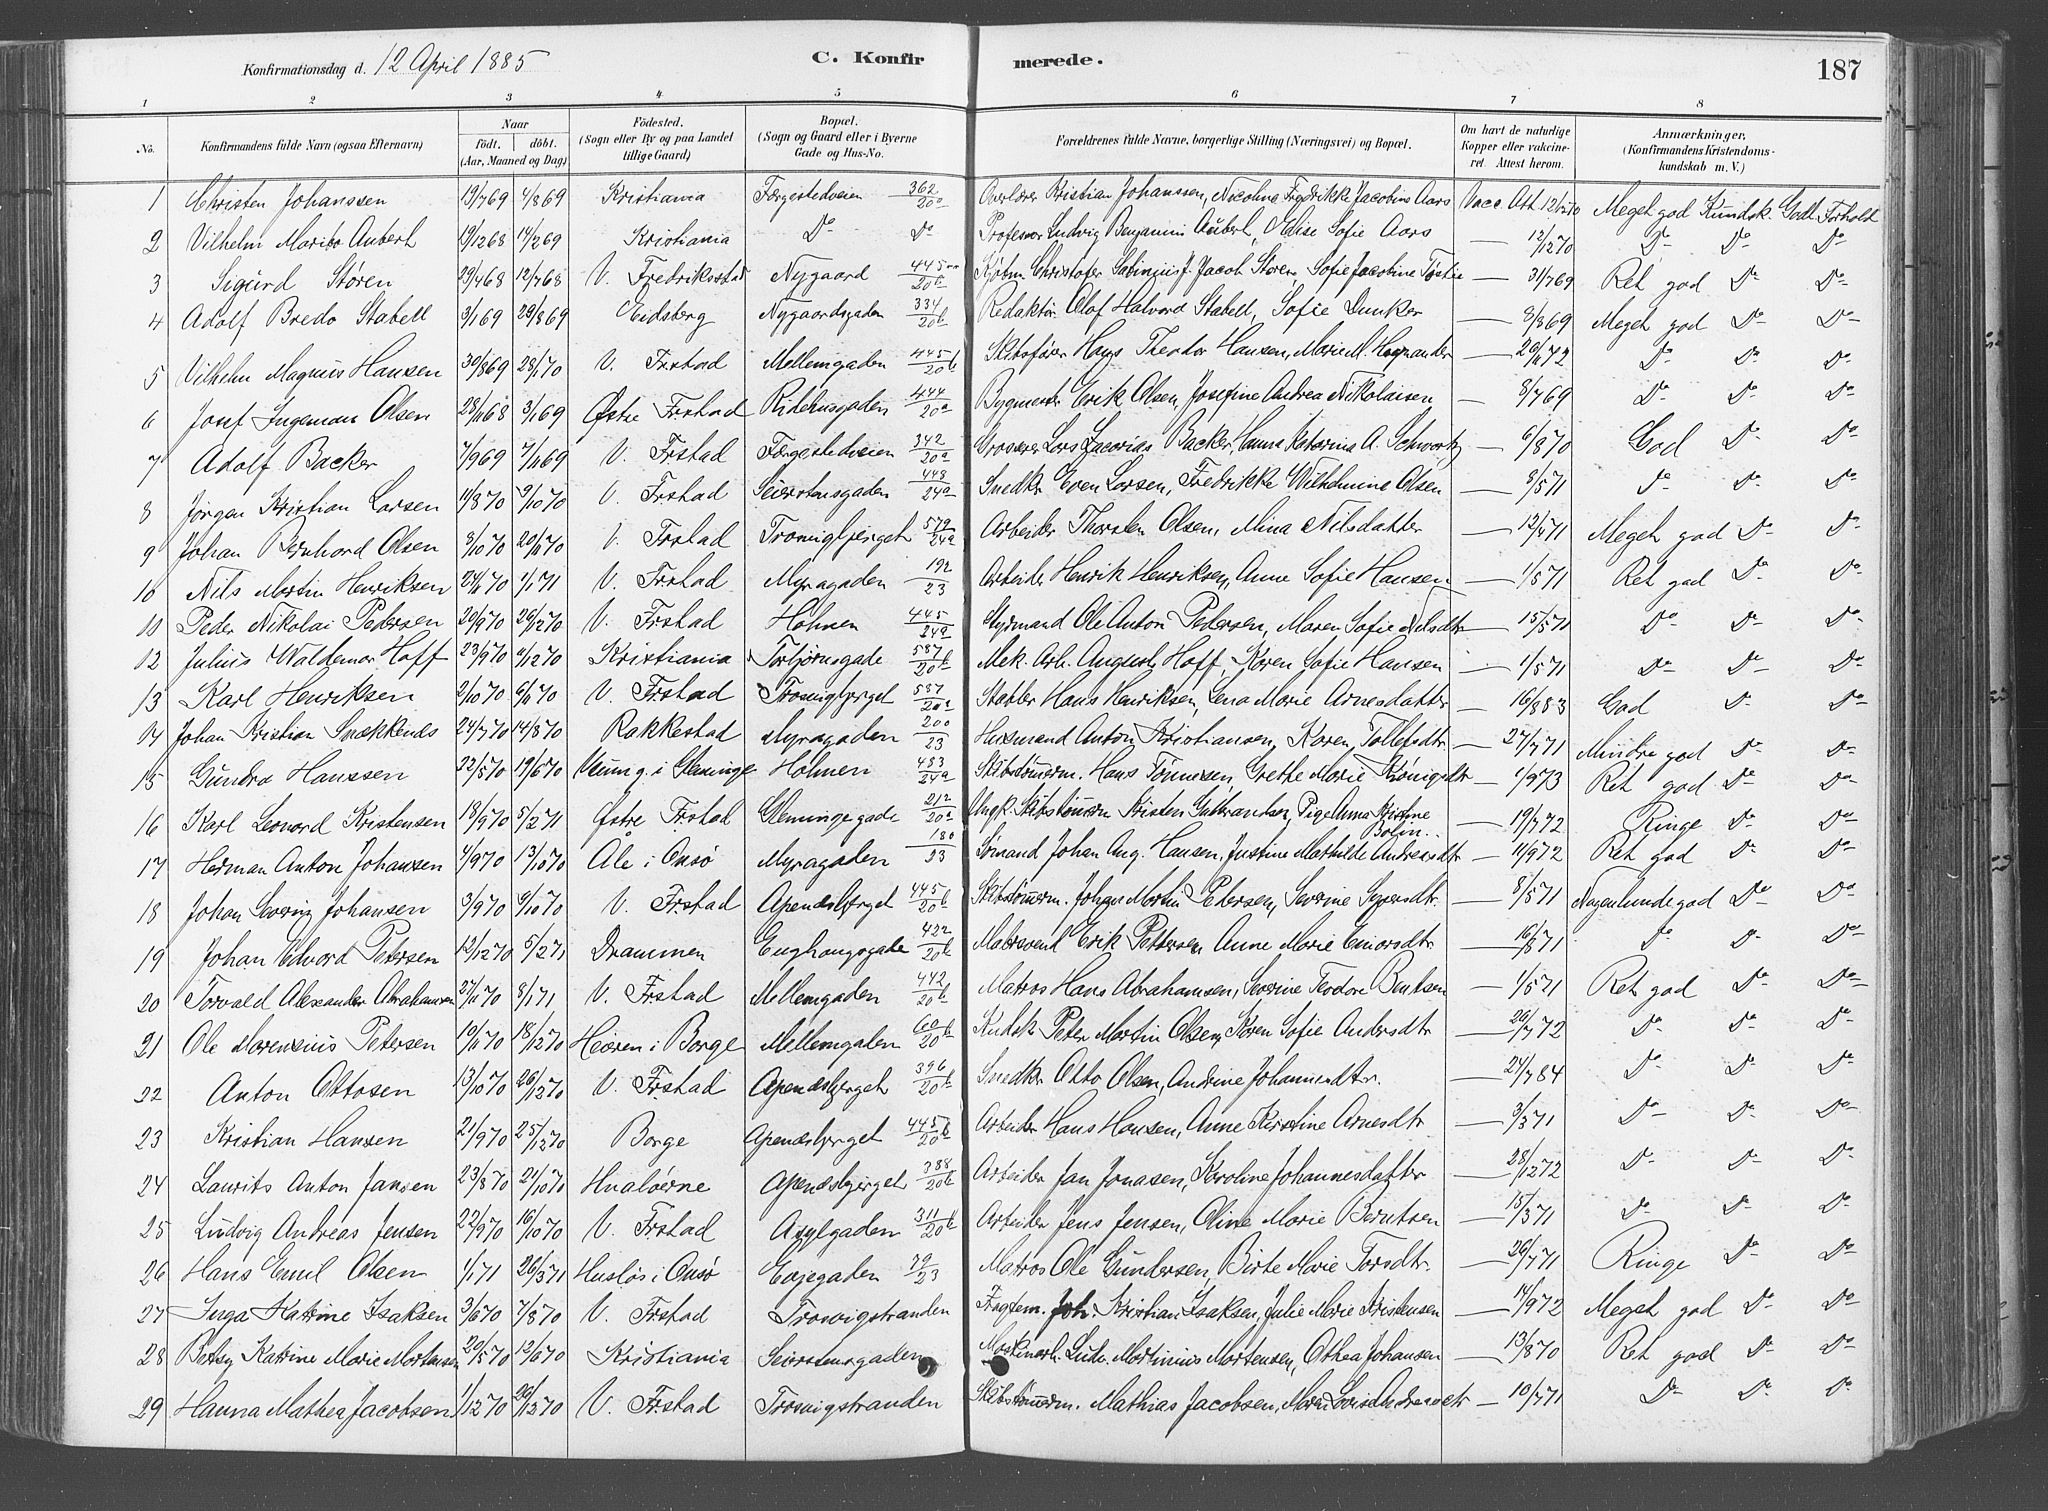 Konfirmationsdag d. 12 April 1885 C. Konfirmerede. 187
1 2 3 4 5 6 7 8
No. Konfirmandens fulde Navn (ogsaa Efternavn) Naar født. døbt. (Aar, Maaned og Dag) Fødested. (Sogn eller By og paa Landet tillige Gaard) Bopæl. (Sogn og Gaard eller i Byerne Gade og Hus-No. Forældrenes fulde Navne, borgerlige Stilling (Næringsvei) og Bopæl. Om havt de naturlige Kopper eller vaccineret. Attest herom. Anmærkninger, (Konfirmandens Kristendomskundskab m. V.)
1 Christen Johanssen 19/7 69 4/8 69 Kristiania Færgestedveien 362/20a Overlærer Kristian Johanssen, Nicoline Fredrikke Jacobine Aars Vacc. Att. Meget god Kundsk. Godt Forhold
2 Vilhelm Aubert 19/12 68 14/2 69 Kristiania Do Do Professor Ludvig Benjamin Aubert, Sofie Aars — 12/12 70 Do Do Do
3 Sigurd Støren 29/4 68 12/7 68 V. Fredriksstad Nygaard Kjøbm. Christofer J. Jacob Støren, Sofie Jacobine — 31/7 69 Ret god Do Do
4 Adolf Bredo Stabell 3/1 69 29/8 69 Eidsberg Nygaardsgaden 334/20b Redaktør Olaf Halvord Stabell, Sofie Dunker — 8/8 69 Meget god Do Do
5 Vilhelm Magnus Hansen 30/8 69 28/1 70 V. Frstad Mellemgaden 445/20b Skibsfører Hans Theodor Hansen, Marie M. — 26/11 72 Do Do Do
6 Josef Ingeman Olsen 28/11 68 3/1 69 Østre Frstad Ridehusgaden 444/20a Bygmester Erik Olsen, Josefine Andrea Nikolaisen — 8/7 69 Do Do Do
7 Adolf Backer 7/9 69 7/11 69 V. Frstad Færgestedveien 342/20a Grosserer Lars Zacarias Backer, Hanna Katarina A. Schwartz — 6/8 70 God Do Do
8 Jørgen Kristian Larsen 11/8 70 9/10 70 V. Frstad Seierstensgaden 448/24a Snedker Even Larsen, Fredrikke Wilhelmine Olsen — 8/5 71 Do Do Do
9 Johan Bernhard Olsen 8/10 70 20/11 70 V. Frstad Trosvigbjerget 579/24a Arbeider Thorsten Olsen, Mina Nilsdatter — 12/4 71 Meget god Do Do
10 Nils Martin Henriksen 24/11 70 1/1 71 V. Frstad Myragaden 192/23 Arbeider Henrik Henriksen, Anne Sofie Hansen — 1/5 71 Ret god Do Do
11 Peder Nikolai Pedersen 20/9 70 26/12 70 V. Frstad Holmen 445/24a Styrmand Ole Anton Pedersen, Maren Sofie Nilsdtr — 15/5 71 Do Do Do
12 Julius Waldemar Hoff 23/9 70 Kristiania Torbjørnsgade 587/20b Mek. Arb. August Hoff, Karen Sofie Hansen — 1/5 71 Do Do Do
13 Karl Henriksen 2/10 70 6/11 70 V. Frstad Trosvigbjerget 587/20a Statler Hans Henriksen, Lena Marie Arnesdatter — 16/8 83 God Do Do
14 Johan Kristian Snekkenes 24/7 70 14/8 70 Rakkestad Myragaden 200/23 Husmand Anton Kristiansen, Karen Tollefsdtr — 27/7 71 Mindre god Do Do
15 Gundro Hanssen 22/5 70 19/6 70 i Glemminge Holmen 483/24a Skibstømerm. Hans Tønnesen, Grethe Marie — 1/9 73 Ret god Do Do
16 Karl Leonard Kristensen 18/9 70 5/2 71 Østre Frstad Glemingegade 212/20a Ungk. Skibstømerm Kristen Guttormsen, Pige Anna Kristine Bolin — 19/7 72 Ringe Do Do
17 Herman Anton Johansen 4/9 70 13/10 70 Ale i Onsø Myragaden 180/23 Sømand Johan Aug. Hansen, Justine Mathilde Andreasdtr — 11/9 72 Ret god Do Do
18 Johan Severin Johansen 3/9 70 9/10 70 V. Frstad Apenæsbjerget 445/20b Skibstømerm. Johan Martin Pedersen, Severine — 8/5 71 Nogenlunde god Do Do
19 Johan Edvard Petersen 12/12 70 5/2 71 Drammen Enghaugsgade 422/20b Matrosvend Erik Pettersen, Anne Marie Einarsdtr — 16/8 71 Do Do Do
20 Torvald Alexander Abrahamsen 27/11 70 8/1 71 V. Frstad Mellemgaden 442/20b Matros Hans Abrahamsen, Severine Teodore Bentsen — 1/5 71 Ret god Do Do
21 Ole Lorensius Petersen 10/11 70 18/12 70 i Borge Mellemgaden 60/20b Kudsk Peter Martin Olsen, Karen Sofie Andersdtr — 26/7 72 Do Do Do
22 Anton Ottosen 13/10 70 26/12 70 V. Frstad Apenæsbjerget 396/20b Snedker Otto Olsen, Andrine Johannesdtr. — 24/7 84 Do Do Do
23 Kristian Hansen 21/9 70 25/12 70 Borge Apenæsbjerget 445/20b Arbeider Hans Hansen, Anne Kirstine Arnesdtr — 3/5 71 Do Do Do
24 Laurits Anton Jansen 23/8 70 21/10 70 Hvaløerne Apenæsbjerget 388/20b Arbeider Jan Jonasen, Karoline Johannesdatter — 28/12 72 Do Do Do
25 Ludvig Andreas Jensen 22/9 70 16/10 70 V. Frstad Asylgaden 311/20b Arbeider Jens Jensen, Oline Marie Berntsen — 15/3 71 Do Do Do
26 Hans Emil Olsen 1/1 71 26/3 71 Husløs i Onsø Enjegaden 79/23 Matros Ole Gundersen, Birte Marie Torsdtr. — 26/7 71 Ringe Do Do
27 Inga Katrine Isaksen 3/6 70 7/8 70 V. Frstad Trosvigstranden Fragtem. Joh. Kristian Isaksen, Julie Marie Kristensen — 14/9 72 Meget god Do Do
28 Betsy Katrine Marie Mortensen 20/5 70 12/6 70 Kristiania Seierstensgaden Maskinarb. Ludv. Martinius Mortensen, Othea Johansen — 13/8 70 Ret god Do Do
29 Hanna Mathea Jacobsen 1/12 70 26/12 70 V. Frstad Trosvigstranden Skibstømerm. Mathias Jacobsen, Maren Lovise Andreasdtr — 10/7 71 Do Do Do